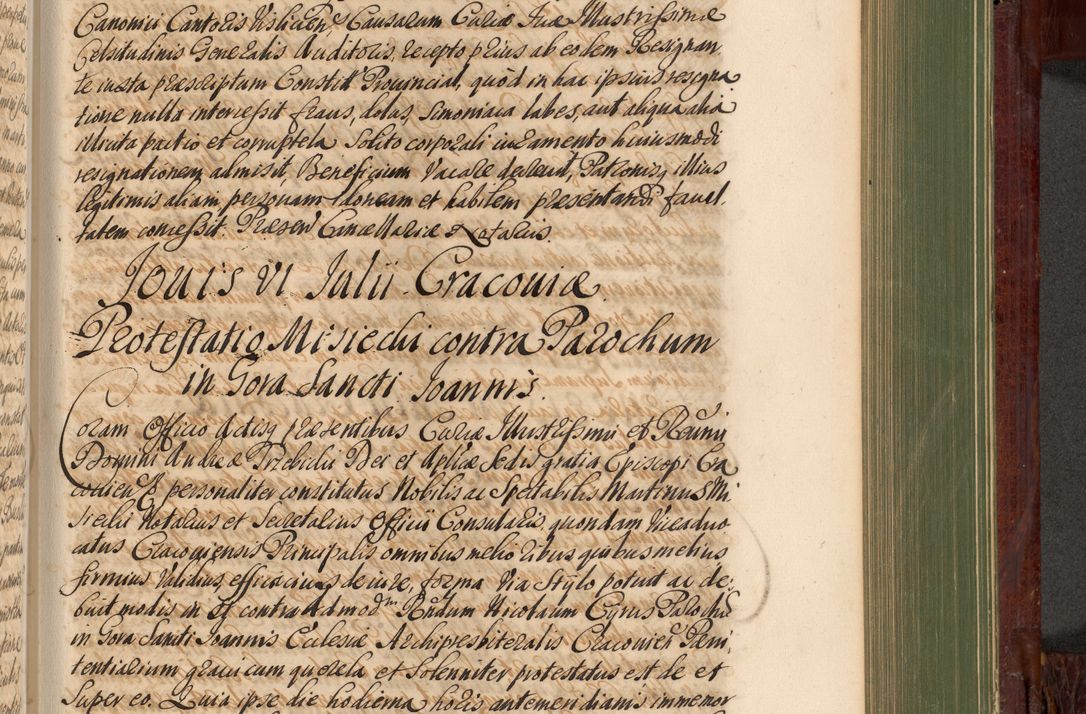 Canonici Cantoris Visliciensis, Causarum Curiæ Suæ Illustrissimæ
Celsitudinis Generalis Auditoris, recepto prius ab eodem Resignan
te iuxta præscriptum Constitt. Provincial, quod in hac ipsius resigna
tione nulla intercessit fraus, dolus, Simoniaca labes, aut aliqua alia
illicita pactio et corruptela Solito corporali iuramento huiusmodi
resignationem admisit, Beneficium Vacare decrevit, Patronisq illius
legitimis aliam personam Idoneam et habilem præsentandi facul
tatem concessit. Præsen Cancellariæ Notariis.
Jouis VI Julii Cracoviæ.
Protestatio Misiecki contra Parochum
in Gora Sancti Joannis.
Coram Officio Actisq præsentibus Curiæ Illustrissimi et Reverendissimi
Domini Andreæ Trzebicki Dei et Aplicæ Sedis gratia Episcopi Cra
covien & personaliter constitutus Nobilis ac Spectabilis Martinus Mi
siecki Notarius et Secretarius Officii Consularis, quondam Vicaduo
catus Cracoviensis Principalis omnibus melioribus quibus melius
firmius Validius efficacius de iure, forma Via Stylo potuit ac de:
buit modis in et contra Admodm Rndum Nicolaum Cyrus Parochu
in Gora Sancti Joannis Ecclesiæ Archipresbiteralis Cracovien Pæni
tentiarium gravi cum querela et Solenniter protestatus est de et
Super eo. Quia ipse die hodierna horis antemeridianis immemor